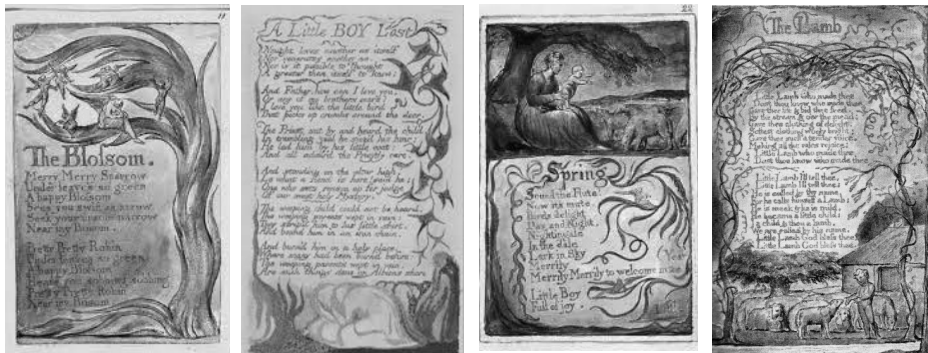 11
The Blossom.
Merry Merry Sparrow
Under leaves so green
A happy Blossom
Sees you swift as arrow
Seek your cradle narrow
Near my Bosom.
Pretty Pretty Robin
Under leaves so green
A happy Blossom
Hears you sobbing sobbing
Pretty Pretty Robin
Near my Bosom.
A Little BOY Lost
Nought loves another as itself
Nor venerates another so,
Nor is it possible to Thought
A greater than itself to know:
And Father, how can I love you,
Or any of my brothers more?
I love you like the little bird
That picks up crumbs around the door.
The Priest sat by and heard the child.
In trembling zeal he siez'd his hair:
He led him by his little coat:
And all admir'd the Priestly care.
And standing on the altar high,
Lo what a fiend is here! said he:
One who sets reason up for judge
Of our most holy Mystery.
The weeping child could not be heard.
The weeping parents wept in vain:
They strip'd him to his little shirt.
And bound him in an iron chain.
And burn'd him in a holy place,
Where many had been burn'd before:
The weeping parents wept in vain.
Are such things done on Albions shore.
22
Spring
Sound the Flute!
Now it's mute.
Birds delight
Day and Night.
Nightingale
In the dale
Lark in Sky
Merrily
Merrily Merrily to welcome in the Year
Little Boy
Full of joy.
The Lamb
Little Lamb who made thee
Dost thou know who made thee
Gave thee life & bid thee feed.
By the stream & o'er the mead;
Gave thee clothing of delight,
Softest clothing wooly bright;
Gave thee such a tender voice,
Making all the vales rejoice:
Little Lamb who made thee
Dost thou know who made thee
Little Lamb I'll tell thee,
Little Lamb I'll tell thee;
He is called by thy name,
For he calls himself a Lamb:
He is meek & he is mild,
He became a little child:
I a child & thou a lamb,
We are called by his name.
Little Lamb God bless thee.
Little Lamb God bless thee.